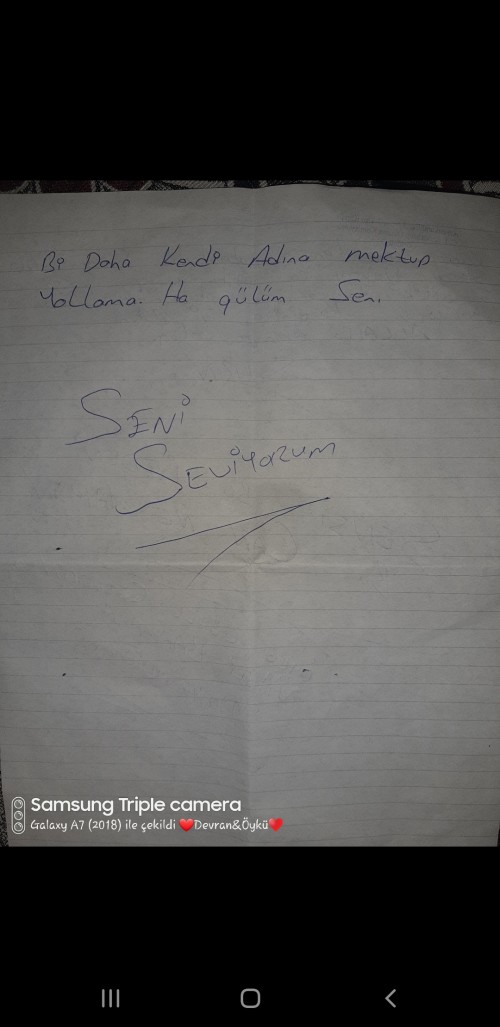 Bi Daha Kendi Adına mektup
Yollama. Ha gülüm Sen.
SENİ
SEVİYORUM
Samsung Triple camera
Galaxy A7 (2018) ile çekildi ❤Devran&Öykü❤